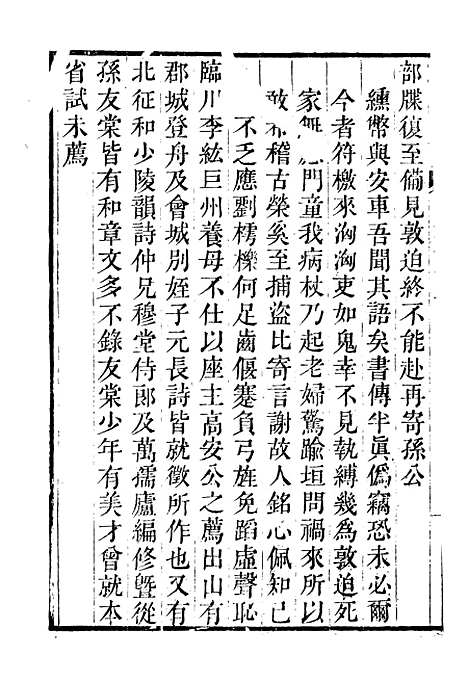 部牒復至備見敦迫終不能赴再寄孫公
纁幣與安車吾聞其語矣書傳半眞僞竊恐未必爾
今者符檄來洶洶吏如鬼幸不見執縛幾爲敦迫死
家無門童我病杖乃起老婦驚踰垣問禍來所以
敢希稽古榮奚至捕盜比寄言謝故人銘心佩知己
不乏應劉樗櫟何足齒偃蹇負弓旌免蹈虛聲恥
臨川李紘巨州養母不仕以座主高安公之薦出山有
郡城登舟及會城別姪子元長詩皆就徵所作也又有
北征和少陵韻詩仲兄穆堂侍郞及萬孺廬編修曁從
孫友棠皆有和章文多不錄友棠少年有美才曾就本
省試未薦